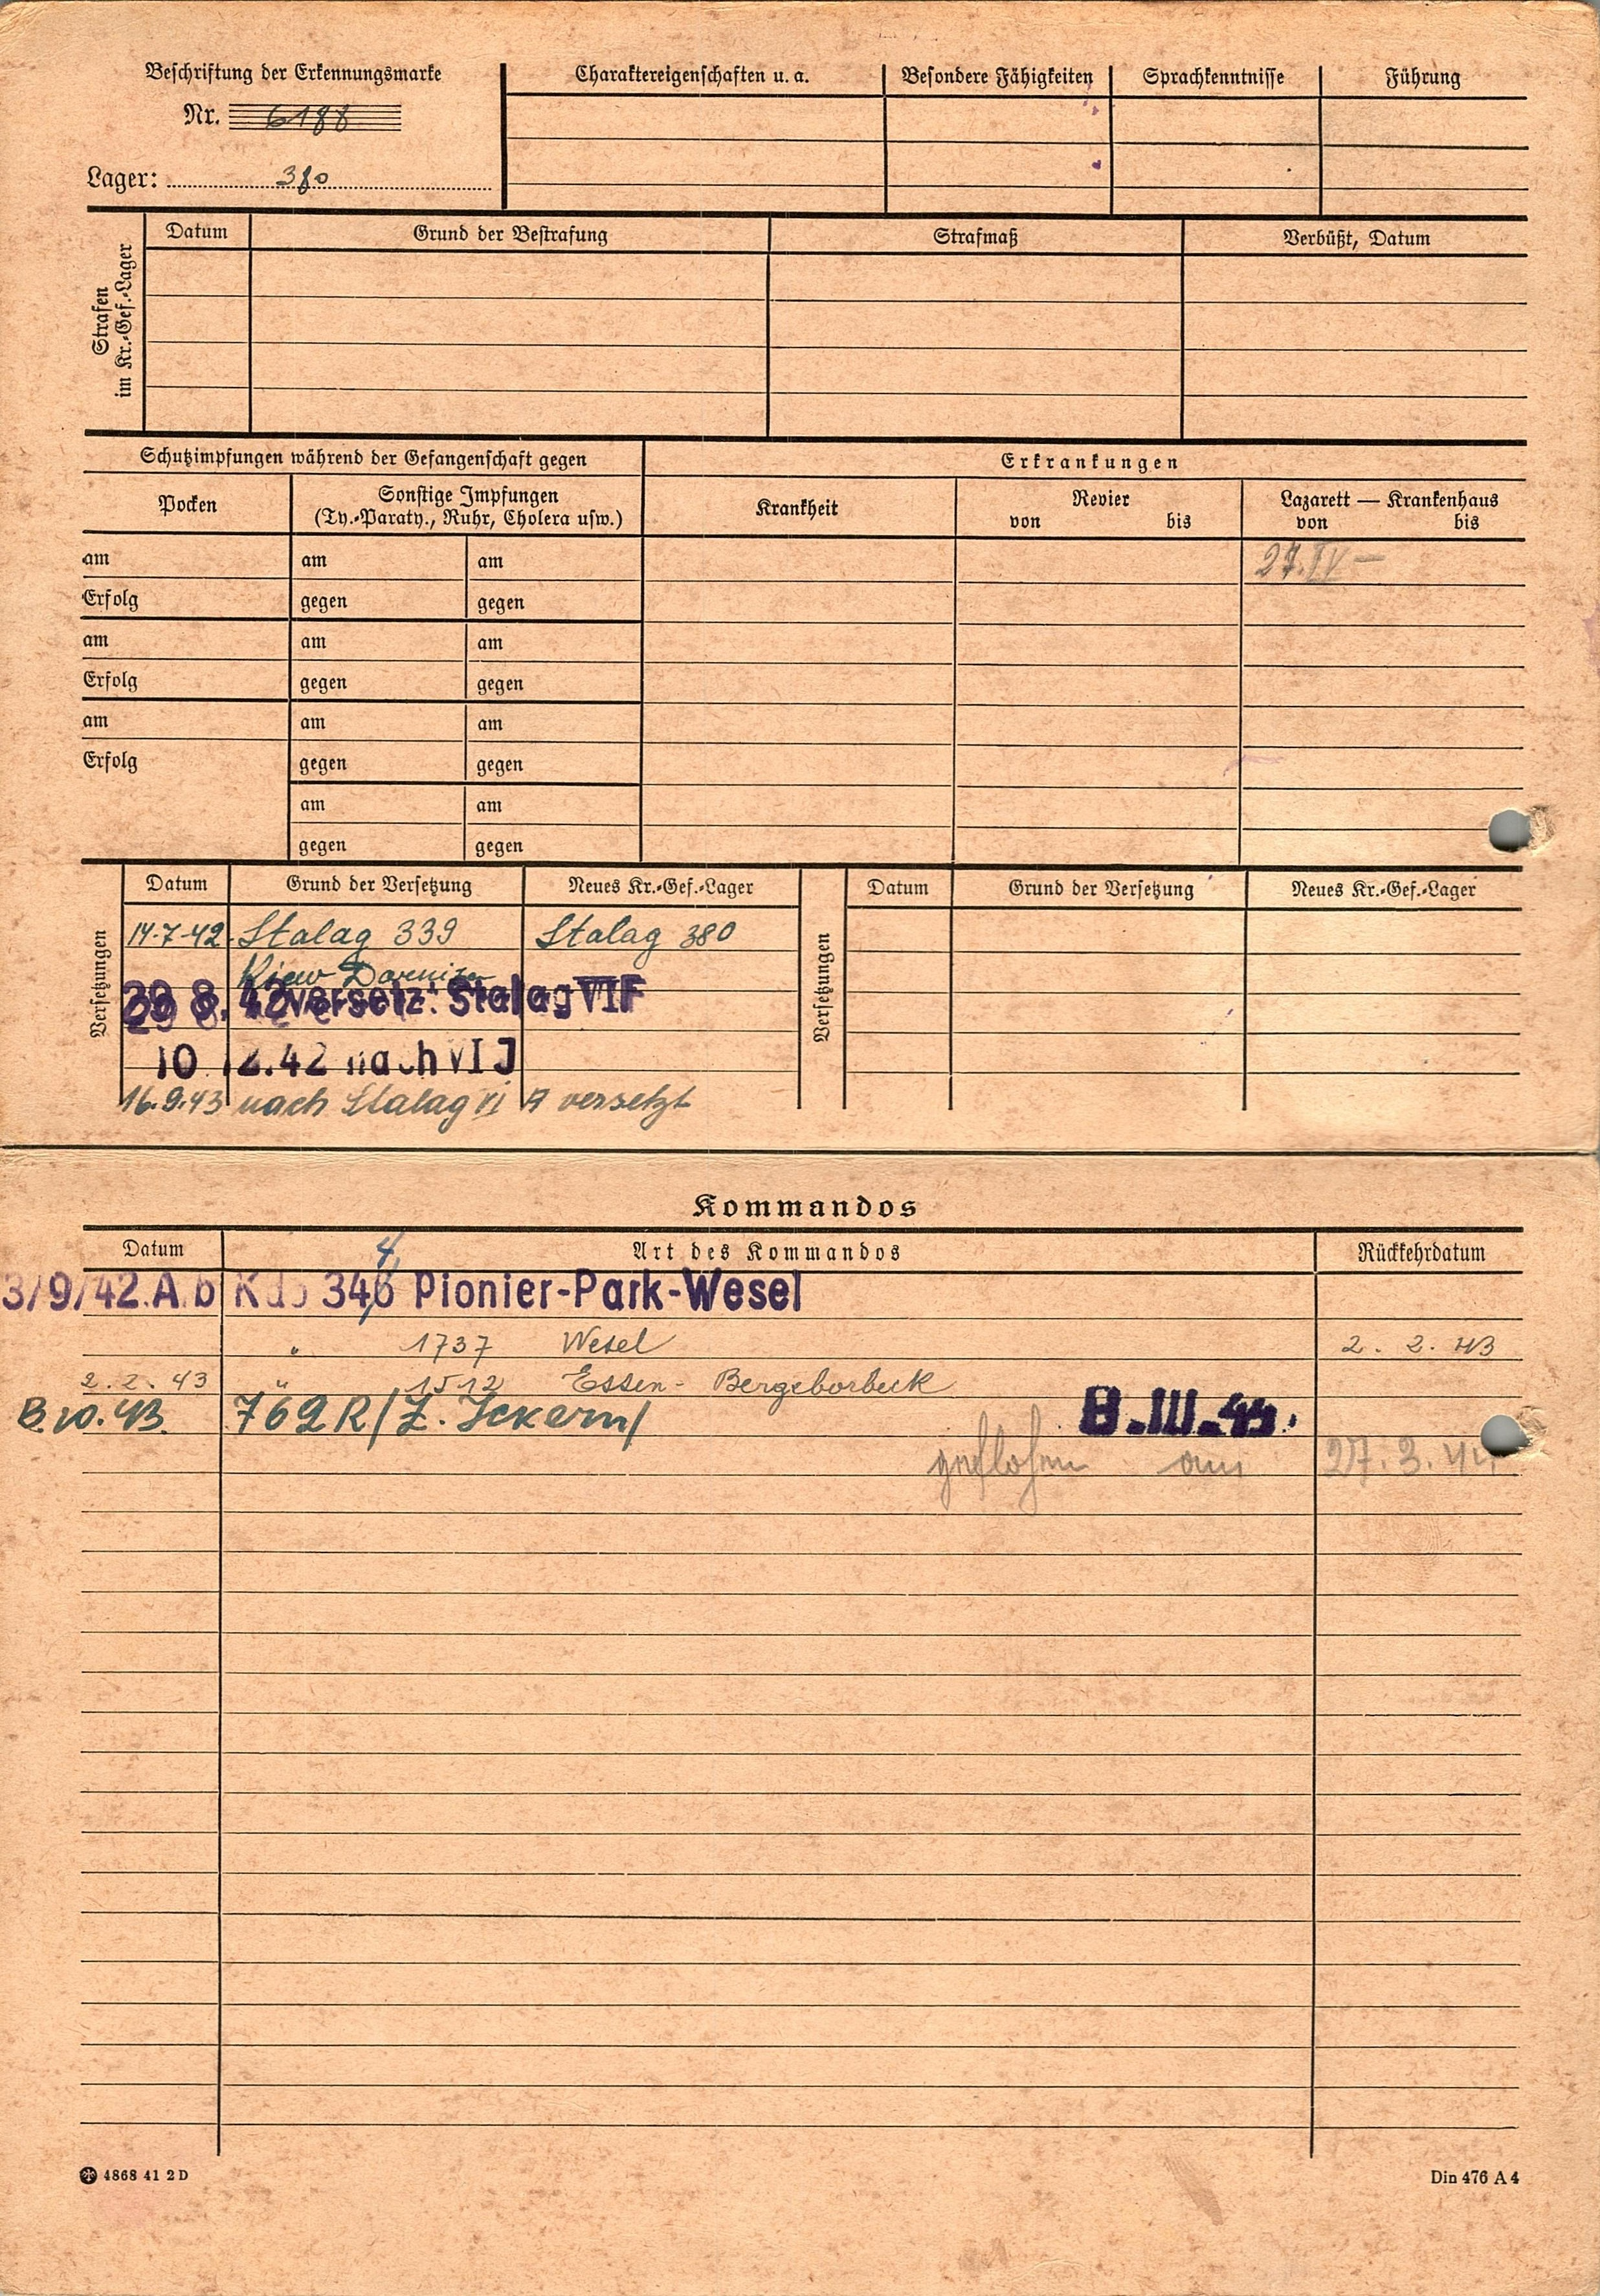 Beschriftung der Erkennungsmarke
Nr. 6188
Lager: 380
Charaktereigenschaften u. a.
Besondere Fähigkeiten
Sprachkenntnisse
Führung
Strafen
im Kr.-Gef.-Lager
Datum
Grund der Bestrafung
Strafmaß
Verbüßt, Datum
Schutzimpfungen während der Gefangenschaft gegen
Erkrankungen
Pocken
Sonstige Impfungen
(Ty.-Paraty., Ruhr, Cholera usw.)
Krankheit
Revier
von bis
Lazarett — Krankenhaus
von bis
am am am
27. IV —
Erfolg gegen gegen
am am am
Erfolg gegen gegen
am am am
Erfolg gegen gegen
am am
gegen gegen
Versetzungen
Datum Grund der Versetzung Neues Kr.-Gef.-Lager
14.7.42. Stalag 339 Stalag 380
Kiew Darniza
29. 8. 42 versetz: Stalag VI F
10 12.42 nach VI J
16.9.43 nach Stalag VI A versetzt
Versetzungen
Datum Grund der Versetzung Neues Kr.-Gef.-Lager
Kommandos
Datum Art des Kommandos Rückkehrdatum
4,
3/9/42. A.b Kdo 346 Pionier-Park-Wesel
" 1737 Wesel 2. 2. 43
2. 2. 43 " 1512 Essen- Bergeborbeck
10. 43. 762 R/Z. Ickern/ 8. III. 44.
geflohen am 27. 3. 44.
4868 41 2 D
Din 476 A 4